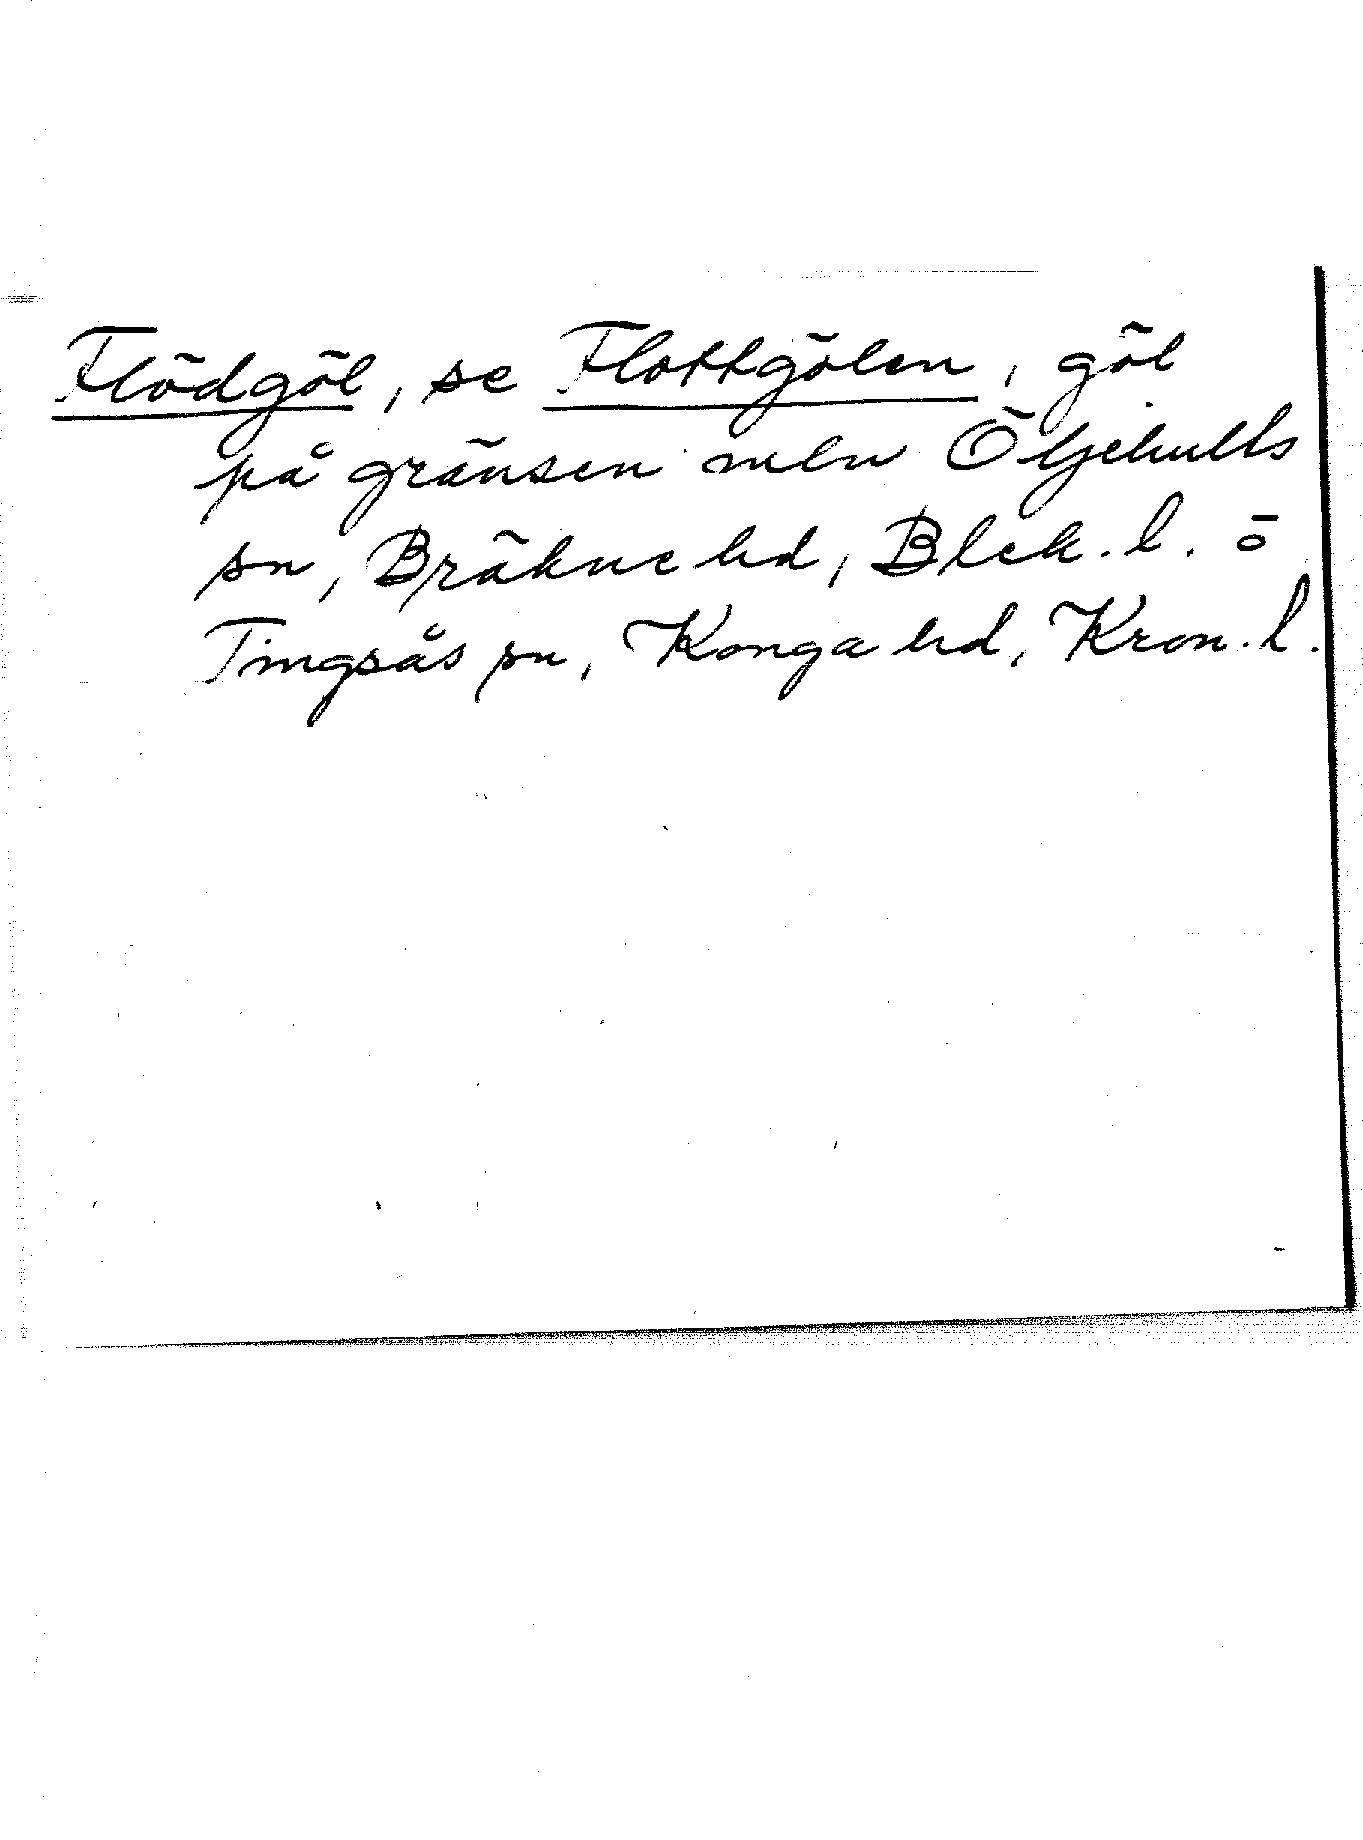 Flödgöl, se Flottgölen, göl
på gränsen mln Öljehults
sn, Bräkne hd, Blek. l. o
Tingsås sn, Konga hd, Kron. l.